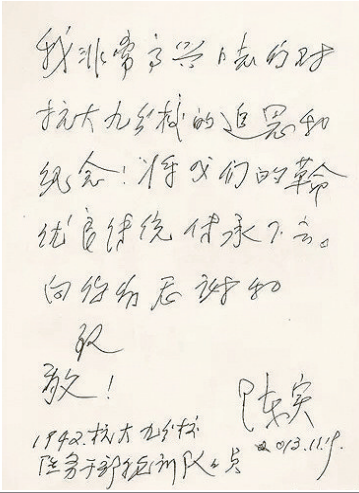 我非常高兴的对
抗大九分校的追思和
纪念！将我们的革命
优良传统传承下去。
向你们谢和
致
敬！
陈实
2013.11.9.
1942.抗大九分校
务干部训队员